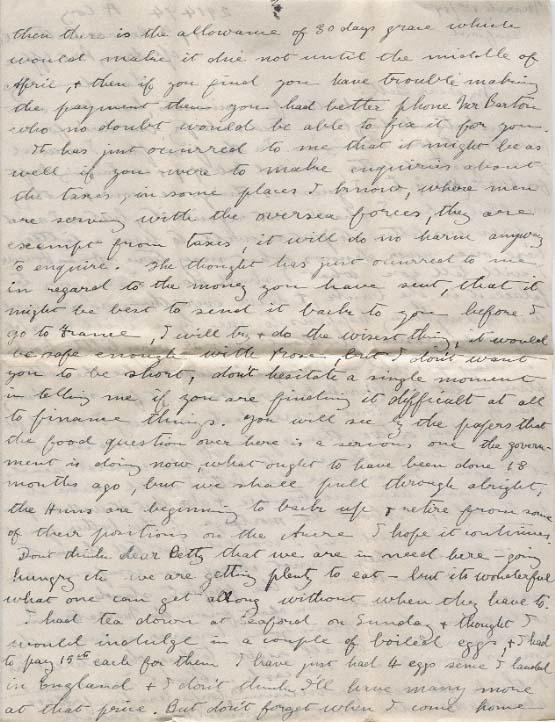 then there is the allowance of 30 days grace which
would make it due not until the middle of
April, & then if you find you have trouble making
the payment then you had better phone Mr Barton
who no doubt would be able to fix it for you.
It has just ocurred to me that it might be as
well if you were to make enquiries about
the taxes, in some places I know, where men
are serving with the oversea forces, they are
exempt from taxes, it will do no harm anyway
to enquire. The thought has just ocurred to me
in regard to the money you have sent, that it
might be best to send it back to you before I
go to France, I will try & do the wisest thing, it would
be safe enough with Rose, but I don't want
you to be short, don't hesitate a single moment
in telling me if you are finding it difficult at all
to finance things. You will see by the papers that
the food question over here is a serious one the govern-
ment is doing now what ought to have been done 18
months ago, but we shall pull through alright,
the Huns are beginning to back up & retire from some
of their positions on the Ancre I hope it continues.
Don't think dear Betty that we are in need here - going
hungry etc we are getting plenty to eat - but its wonderful
what one can get along without when they have to.
I had tea down at Seaford on Sunday & thought I
would indulge in a couple of boiled eggs, & I had
to pay 15cts each for them I have just had 4 eggs since I landed
in England & I don't think I'll have many more
at that price. But don't forget when I come home